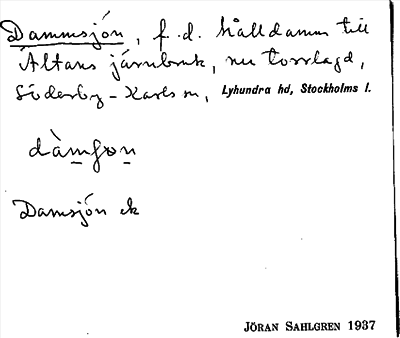 Dammsjön, f. d. hålldamm till
Åltans järnbruk, nu torrlagd,
Söderby-Karls sn, Lyhundra hd, Stockholms l.
Damsjön ek
JÖRAN SAHLGREN 1937